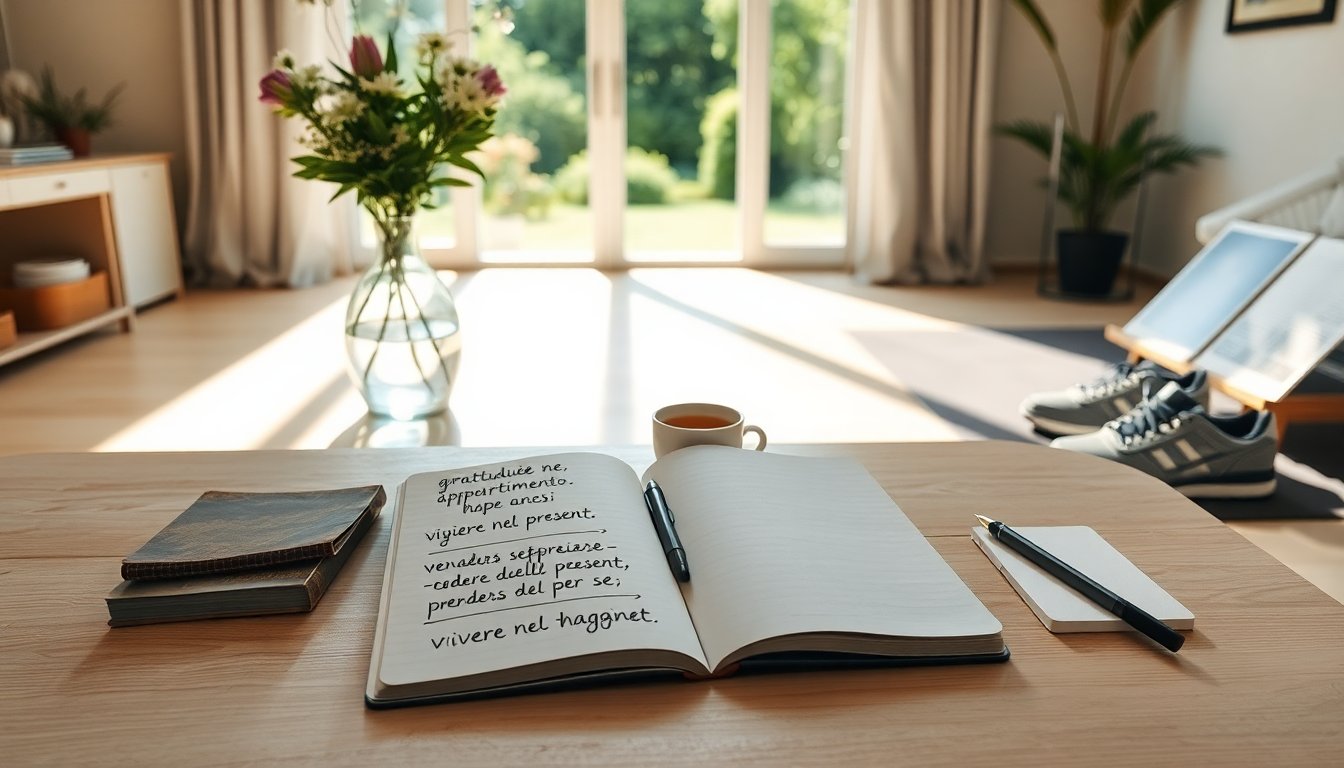 gratiduice ne,
appartimento.
hope ancsi
vigiere nel present.
venadurs sefpreiare-
-codere dielle present,
prenders del per se;
viivere nel haggnet.